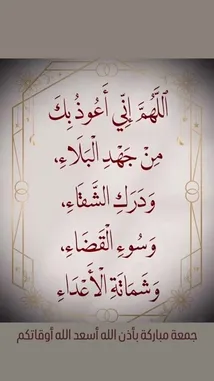 اَللَّهُمَّ إِنِّي أَعُوذُ بِكَ
مِنْ جَهْدِ الْبَلَاءِ،
وَدَرَكِ الشَّقَاءِ،
وَسُوءِ الْقَضَاءِ،
وَشَمَاتَةِ الْأَعْدَاءِ
جمعة مباركة بأذن الله أسعد الله أوقاتكم